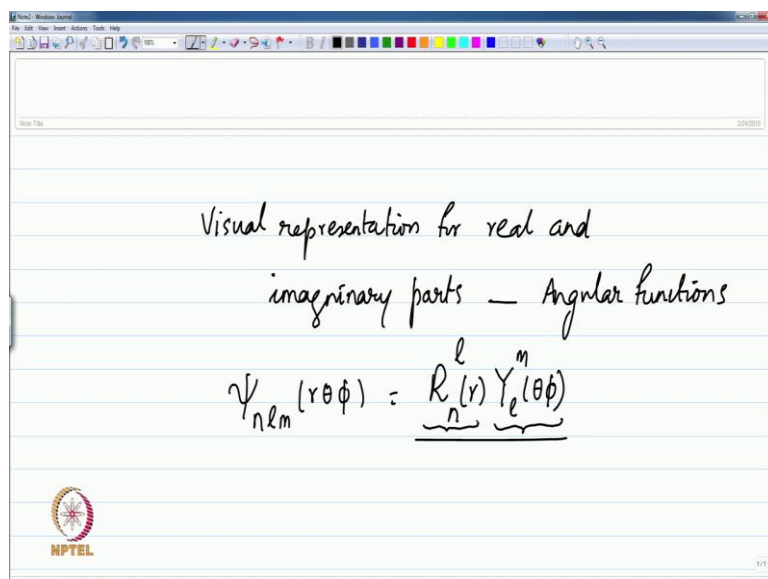 Note2 - Windows Journal
File Edit View Insert Actions Tools Help
Note Title
2/24/2015
Visual representation for real and
imagninary parts — Angular functions
ψ_{nlm} (rθϕ) = R_n^l(r) Y_l^m(θϕ)
NPTEL
1/1